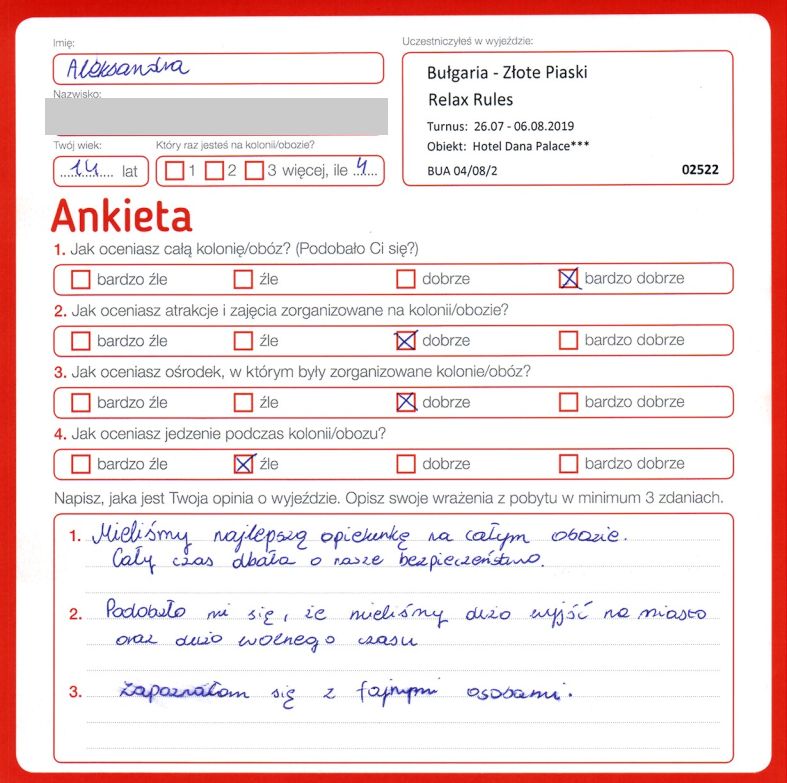 Imię:
Uczestniczyłeś w wyjeździe:
Aleksandra
Bułgaria - Złote Piaski
Relax Rules
Nazwisko:
Turnus: 26.07 - 06.08.2019
Obiekt: Hotel Dana Palace***
BUA 04/08/2 02522
Twój wiek: Który raz jesteś na kolonii/obozie?
14 lat 1 2 3 więcej, ile 4
Ankieta
1. Jak oceniasz całą kolonię/obóz? (Podobało Ci się?)
bardzo źle źle dobrze bardzo dobrze
2. Jak oceniasz atrakcje i zajęcia zorganizowane na kolonii/obozie?
bardzo źle źle dobrze bardzo dobrze
3. Jak oceniasz ośrodek, w którym były zorganizowane kolonie/obóz?
bardzo źle źle dobrze bardzo dobrze
4. Jak oceniasz jedzenie podczas kolonii/obozu?
bardzo źle źle dobrze bardzo dobrze
Napisz, jaka jest Twoja opinia o wyjeździe. Opisz swoje wrażenia z pobytu w minimum 3 zdaniach.
1. Mieliśmy najlepszą opiekunkę na całym obozie.
Cały czas dbała o nasze bezpieczeństwo.
2. Podobało mi się, że mieliśmy dużo wyjść na miasto
oraz dużo wolnego czasu
3. Zapoznałam się z fajnymi osobami.